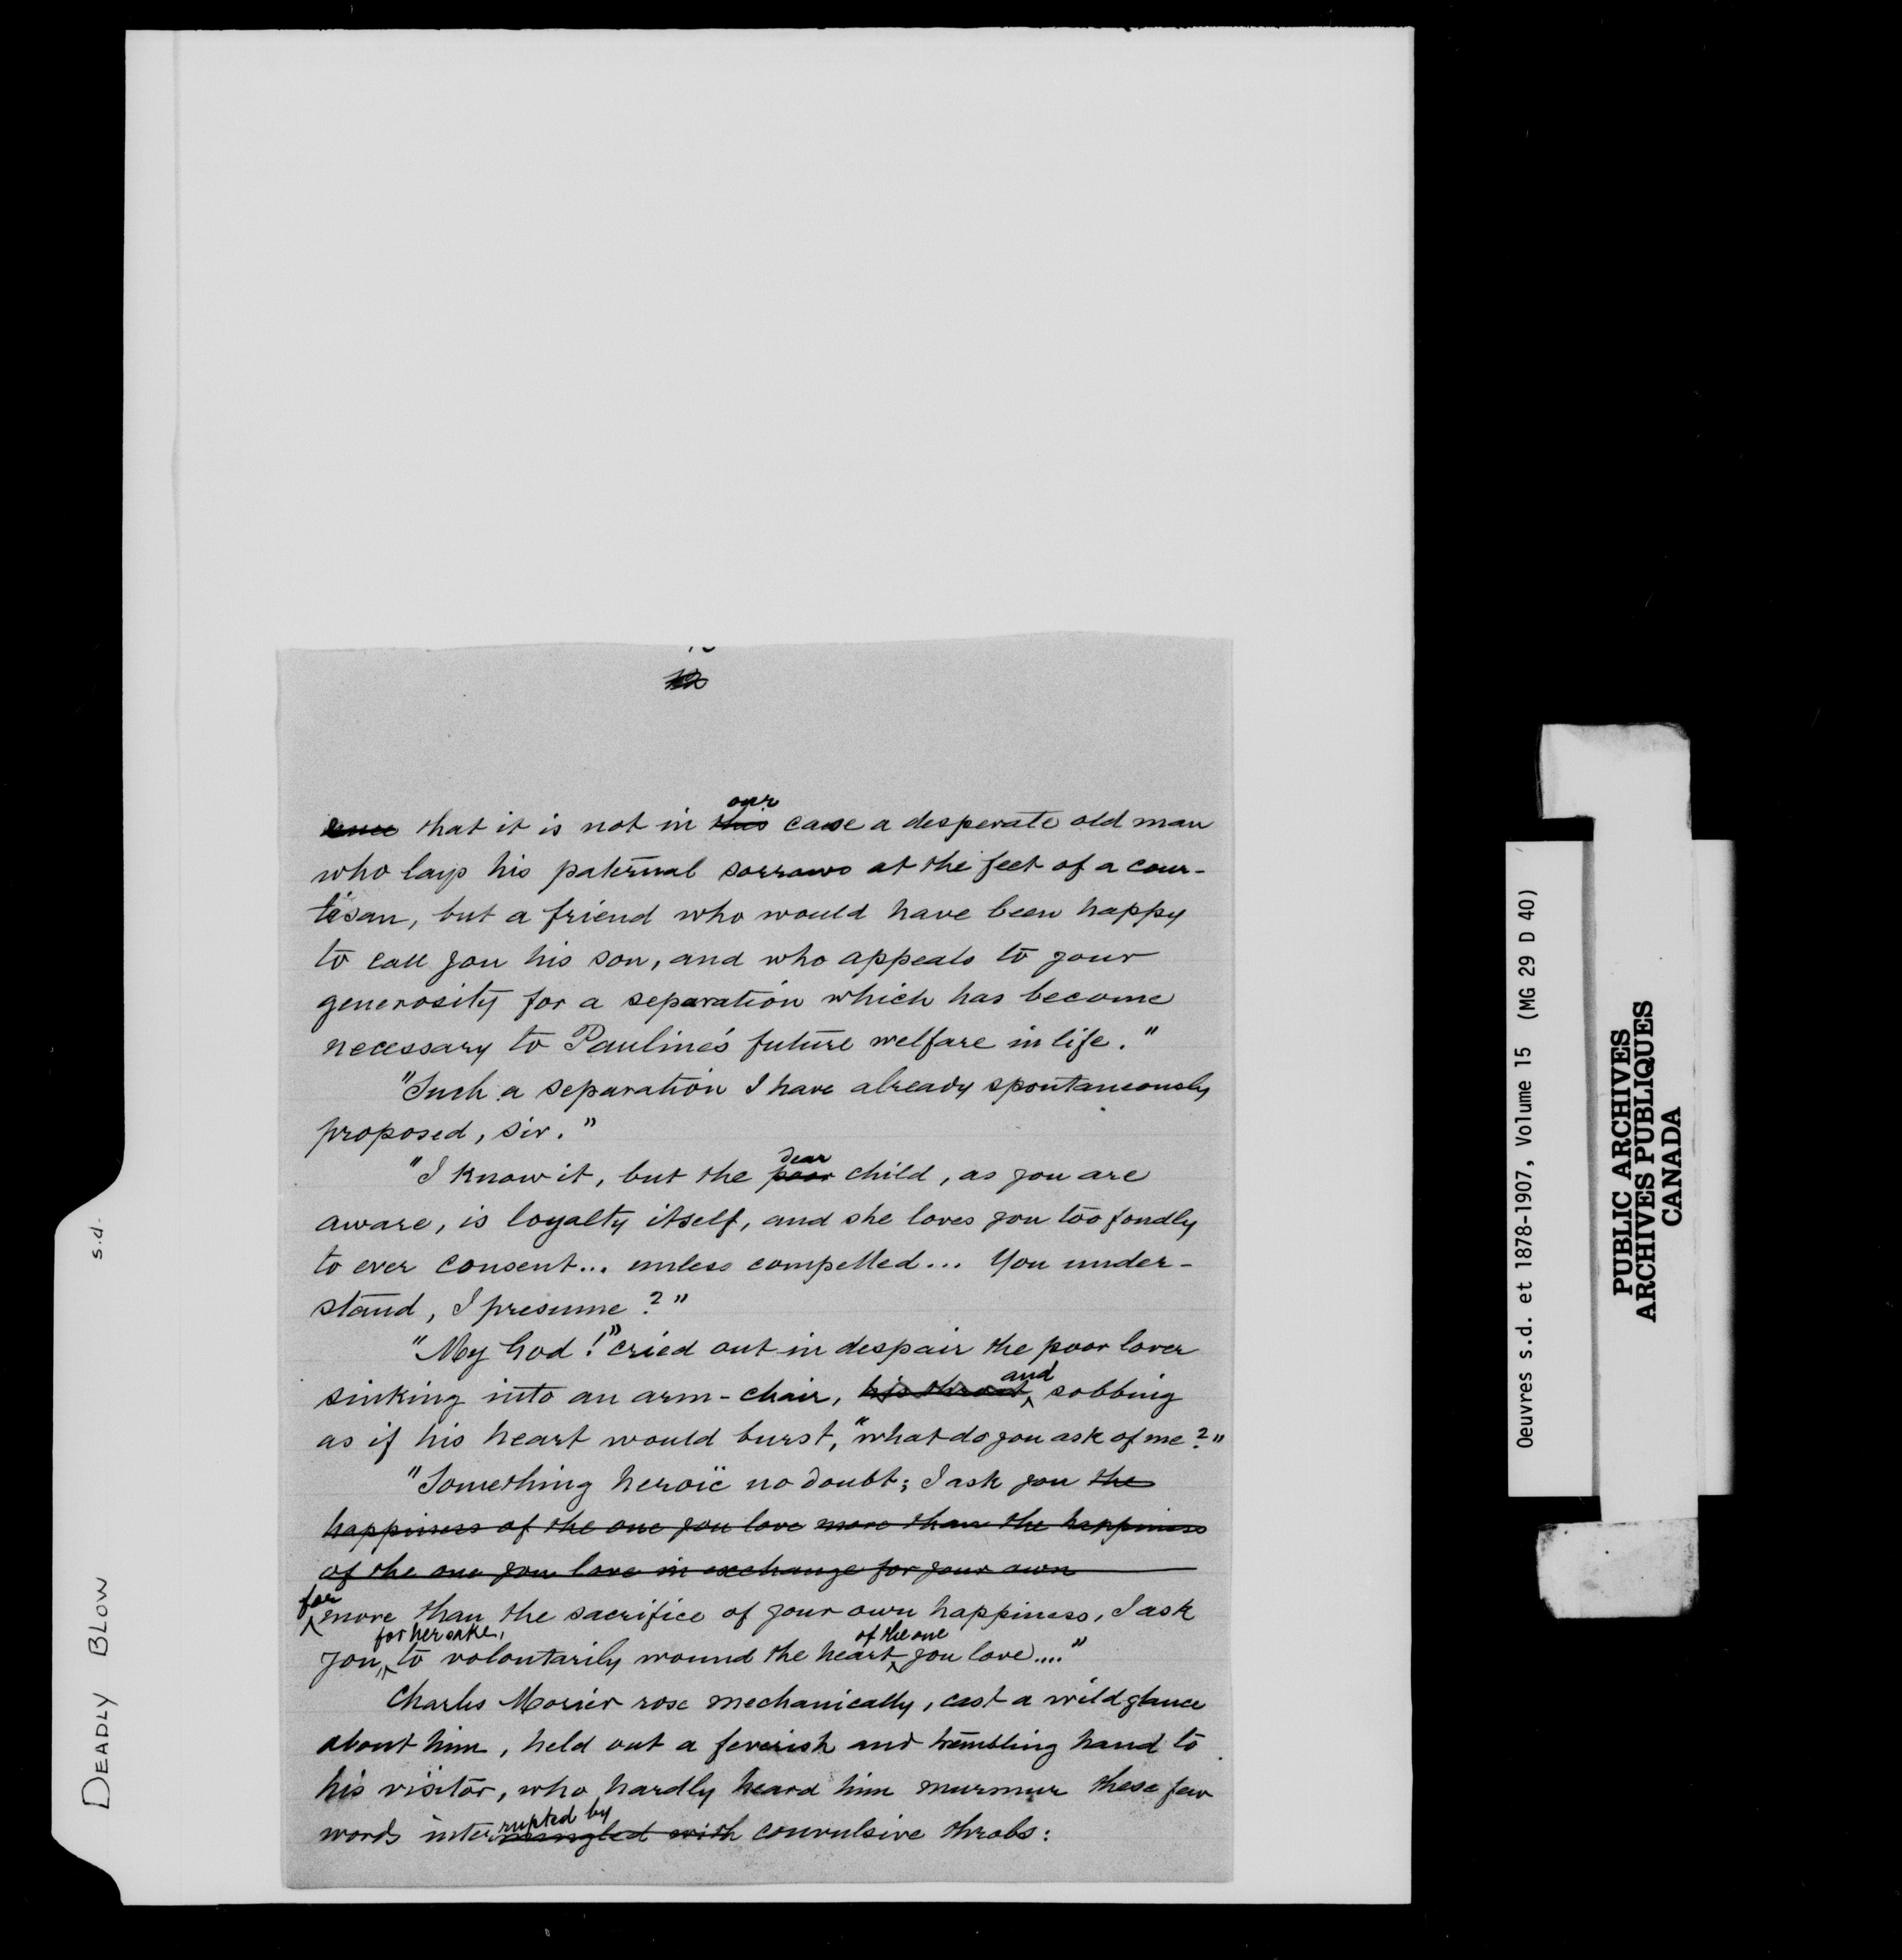 ~~ence~~ that it is not in ~~this~~ our case a desperate old man
who lays his paternal sorrows at the feet of a cour-
tisan, but a friend who would have been happy
to call you his son, and who appeals to your
generosity for a separation which has become
necessary to Pauline's future welfare in life."
"Such a separation I have already spontaneously
proposed, sir."
"I know it, but the ~~poor~~ dear child, as you are
aware, is loyalty itself, and she loves you too fondly
to ever consent... unless compelled... You under-
stand, I presume?"
"My God!" cried out in despair the poor lover
sinking into an arm-chair, ~~his throat,~~ and sobbing
as if his heart would burst, "what do you ask of me?"
"Something heroïc no doubt; I ask you ~~the~~
~~happiness of the one you love more than the happiness~~
~~of the one you love in exchange for your own~~
far more than the sacrifice of your own happiness, I ask
you, for her sake, to voluntarily wound the heart of the one you love...."
Charles Morier rose mechanically, cast a wild glance
about him, held out a feverish and trembling hand to
his visitor, who hardly heard him murmur these few
words inter~~mingled with~~rupted by convulsive throbs:
DEADLY BLOW
s.d.
Oeuvres s.d. et 1878-1907, Volume 15 (MG 29 D 40)
PUBLIC ARCHIVES
ARCHIVES PUBLIQUES
CANADA